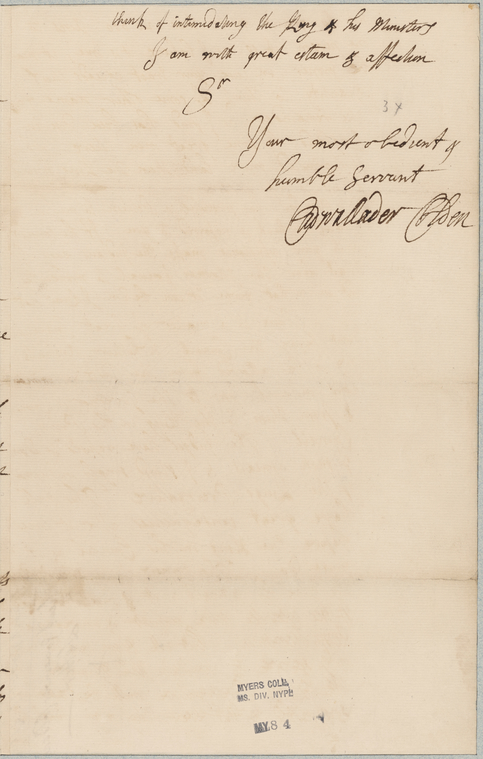 think of intimidating the King & his Ministers
I am with great esteam & affection
Sr
34
Your most obedient &
humble Servant
Cadwallader Colden
MYERS COLL.
MS. DIV. NYPL
MY84